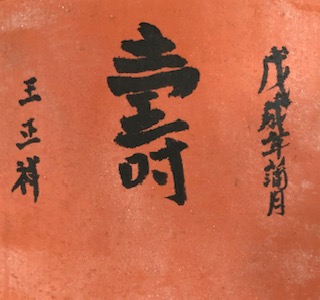 戊戌年蒲月
壽
王正祥